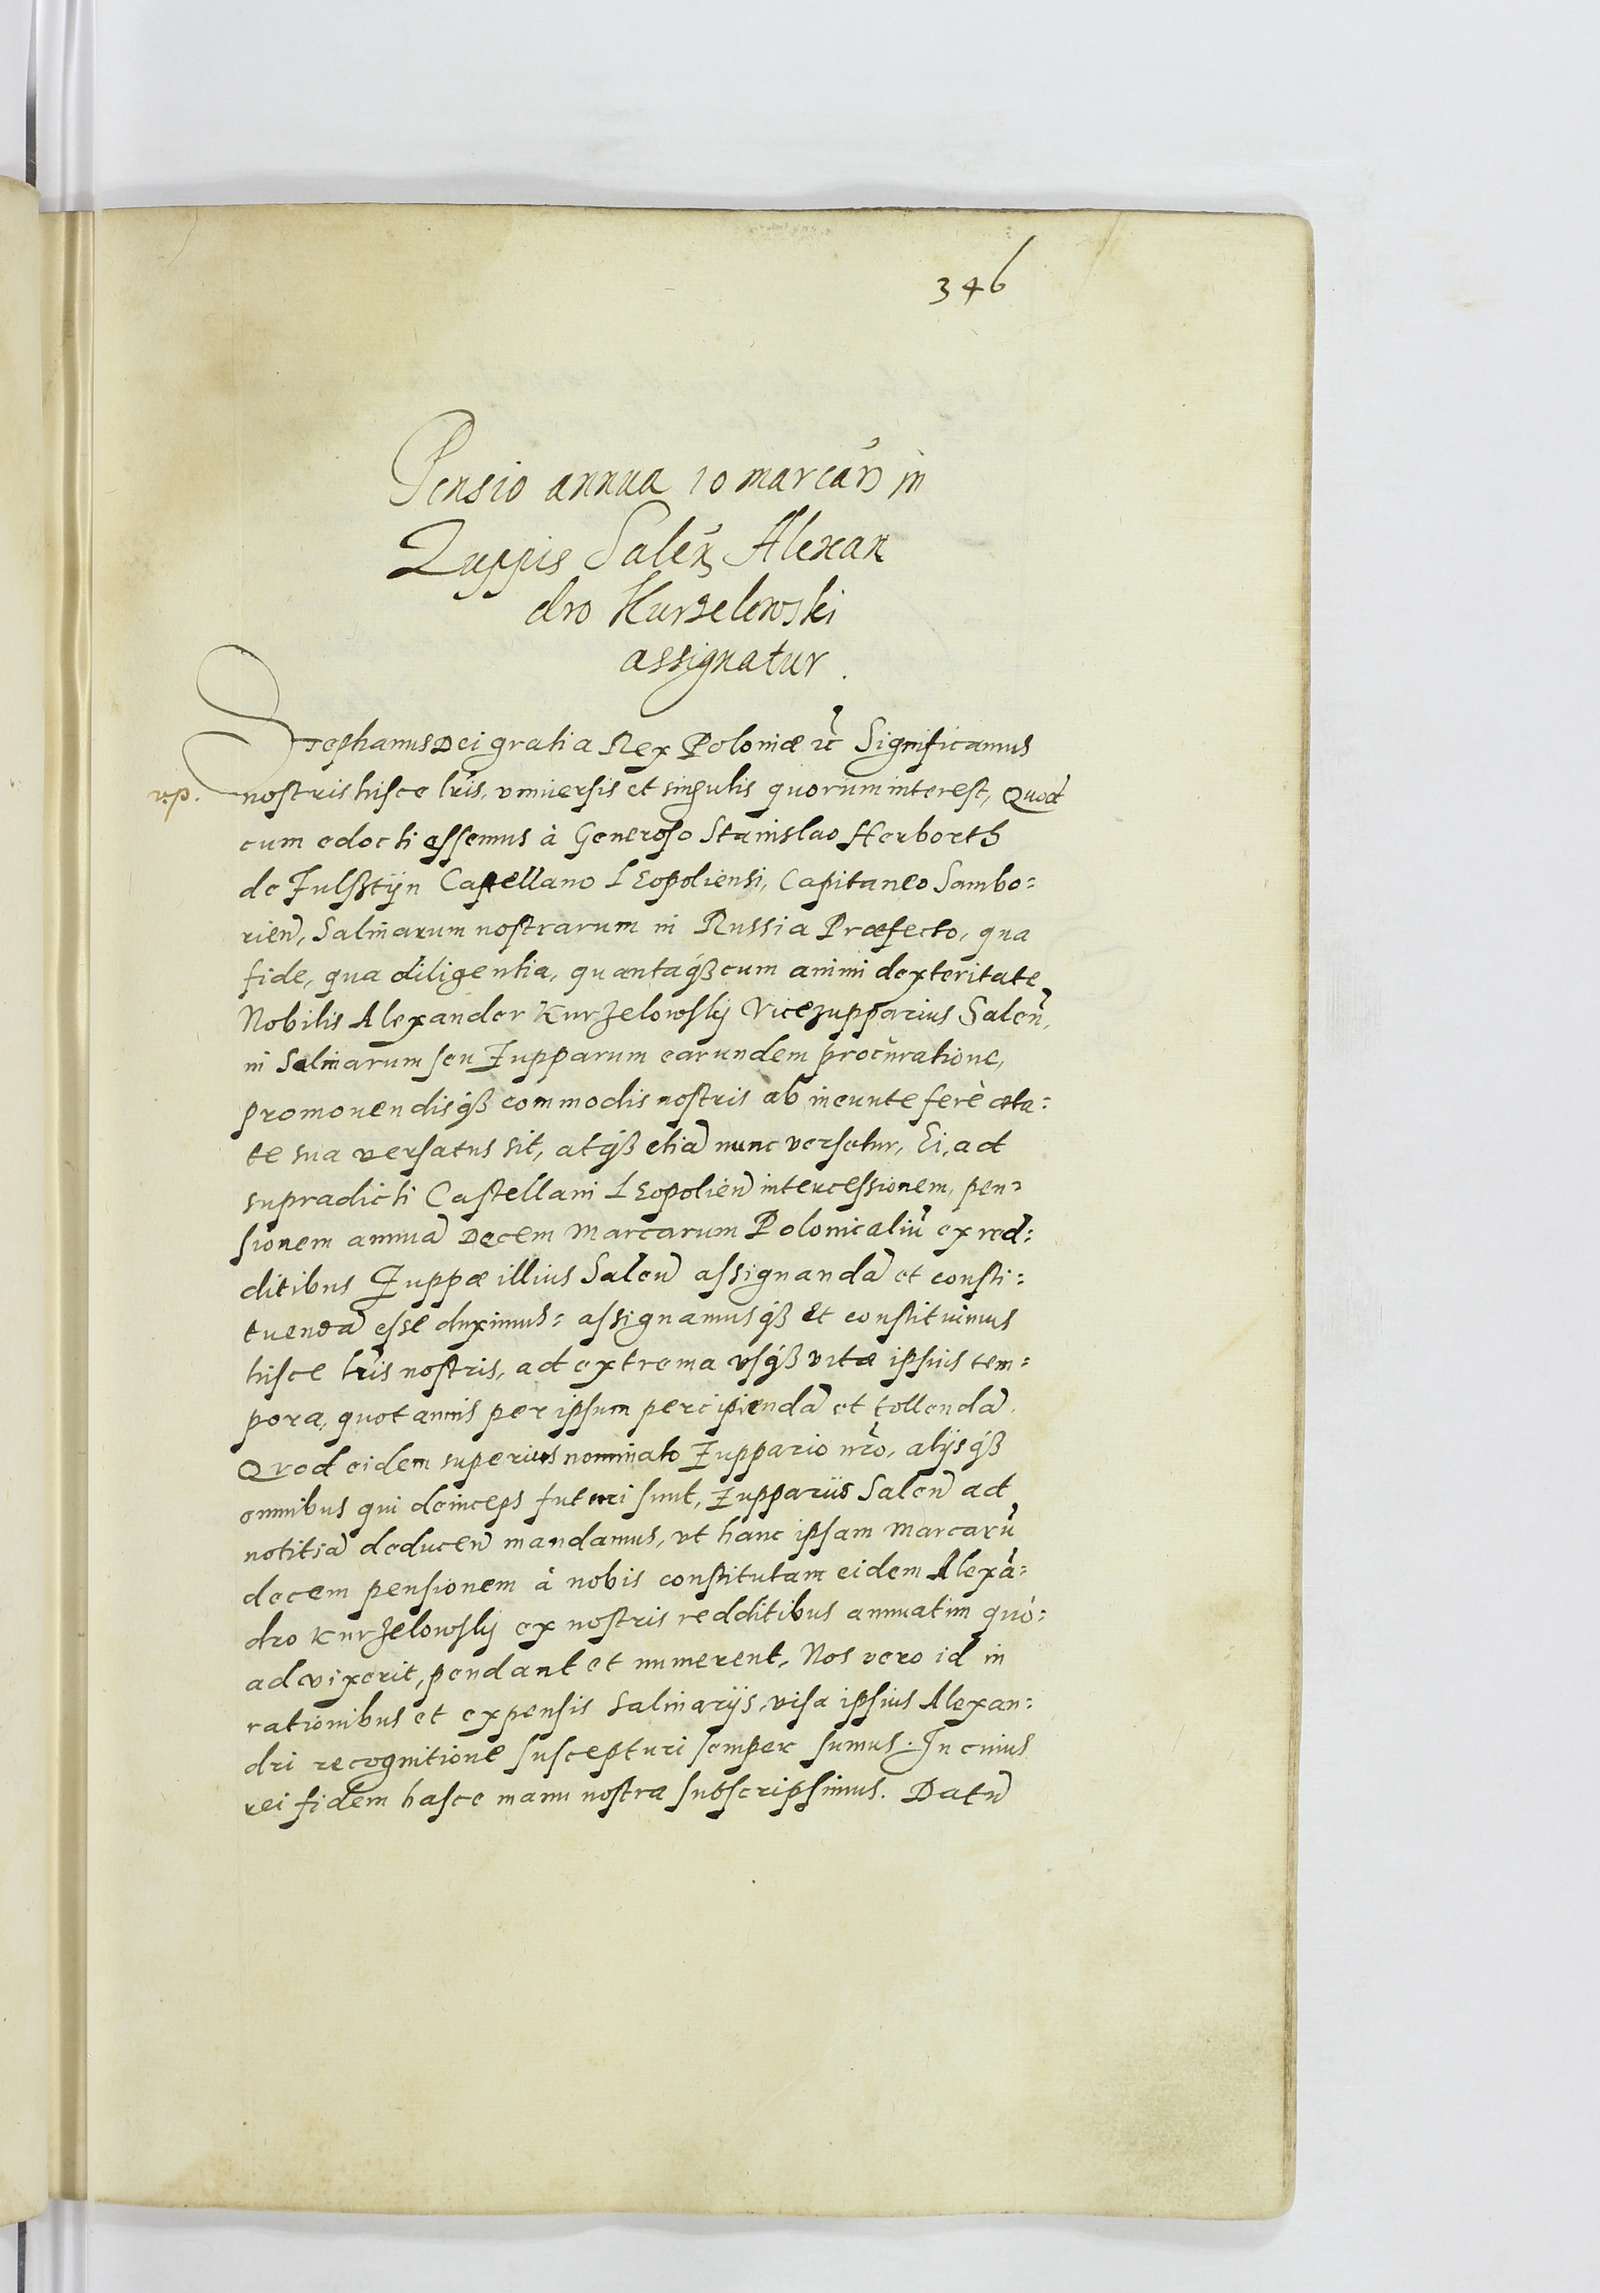 346
Pensio annua 10 marcar̃ in
Zuppis Saleñ Alexan
dro Kurzelewski
assignatur.
Stephanus Dei gratia Rex Poloniæ etc̃ Significamus
v.p.
nostris hisce lr̃is, vniuersis et singulis quorum interest, Quod
cum edocti essemus à Generoso Stanislao Herborth
de Fulsstijn Castellano LEopoliensi, Capitaneo Sambo=
rieñ, Salinarum nostrarum in Russia Præfecto, qua
fide, qua diligentia, quantaq́ꝫ cum animi dexteritate
Nobilis Alexander Kurzelowsky Vicezupparius Saleñ,
in Salinarum seu Zupparum earundem procuratione,
promouendisq́ꝫ commodis nostris ab ineunte ferè æta=
te sua versatus sit, atq́ꝫ etiã nunc versetur, Ei, ad
supradicti Castellani LEopolieñ intercessionem, pen=
sionem annuã Decem Marcarum Polonicaliũ ex red=
ditibus Zuppæ illius Saleñ assignandã et consti=
tuendã esse duximus: assignamusq́ꝫ et constituimus
hisce lr̃is nostris, ad extrema vsq́ꝫ vitæ ipsius tem=
pora, quot annis per ipsum percipiendã et tollendã.
Quod eidem superius nominato Zuppario nr̃o, alijsq́ꝫ
omnibus qui deinceps futuri sunt, Zuppariis Saleñ ad
notitiã deduceñ mandamus, vt hanc ipsam Marcarũ
decem pensionem à nobis constitutam eidem Alexã=
dro Kurzelowsky ex nostris redditibus annuatim quo=
ad vixerit, pendant et numerent, Nos vero id in
rationibus et expensis Salinarijs, visa ipsius Alexan=
dri recognitione suscepturi semper sumus. In cuius
rei fidem hasce manu nostra subscripsimus. Datũ